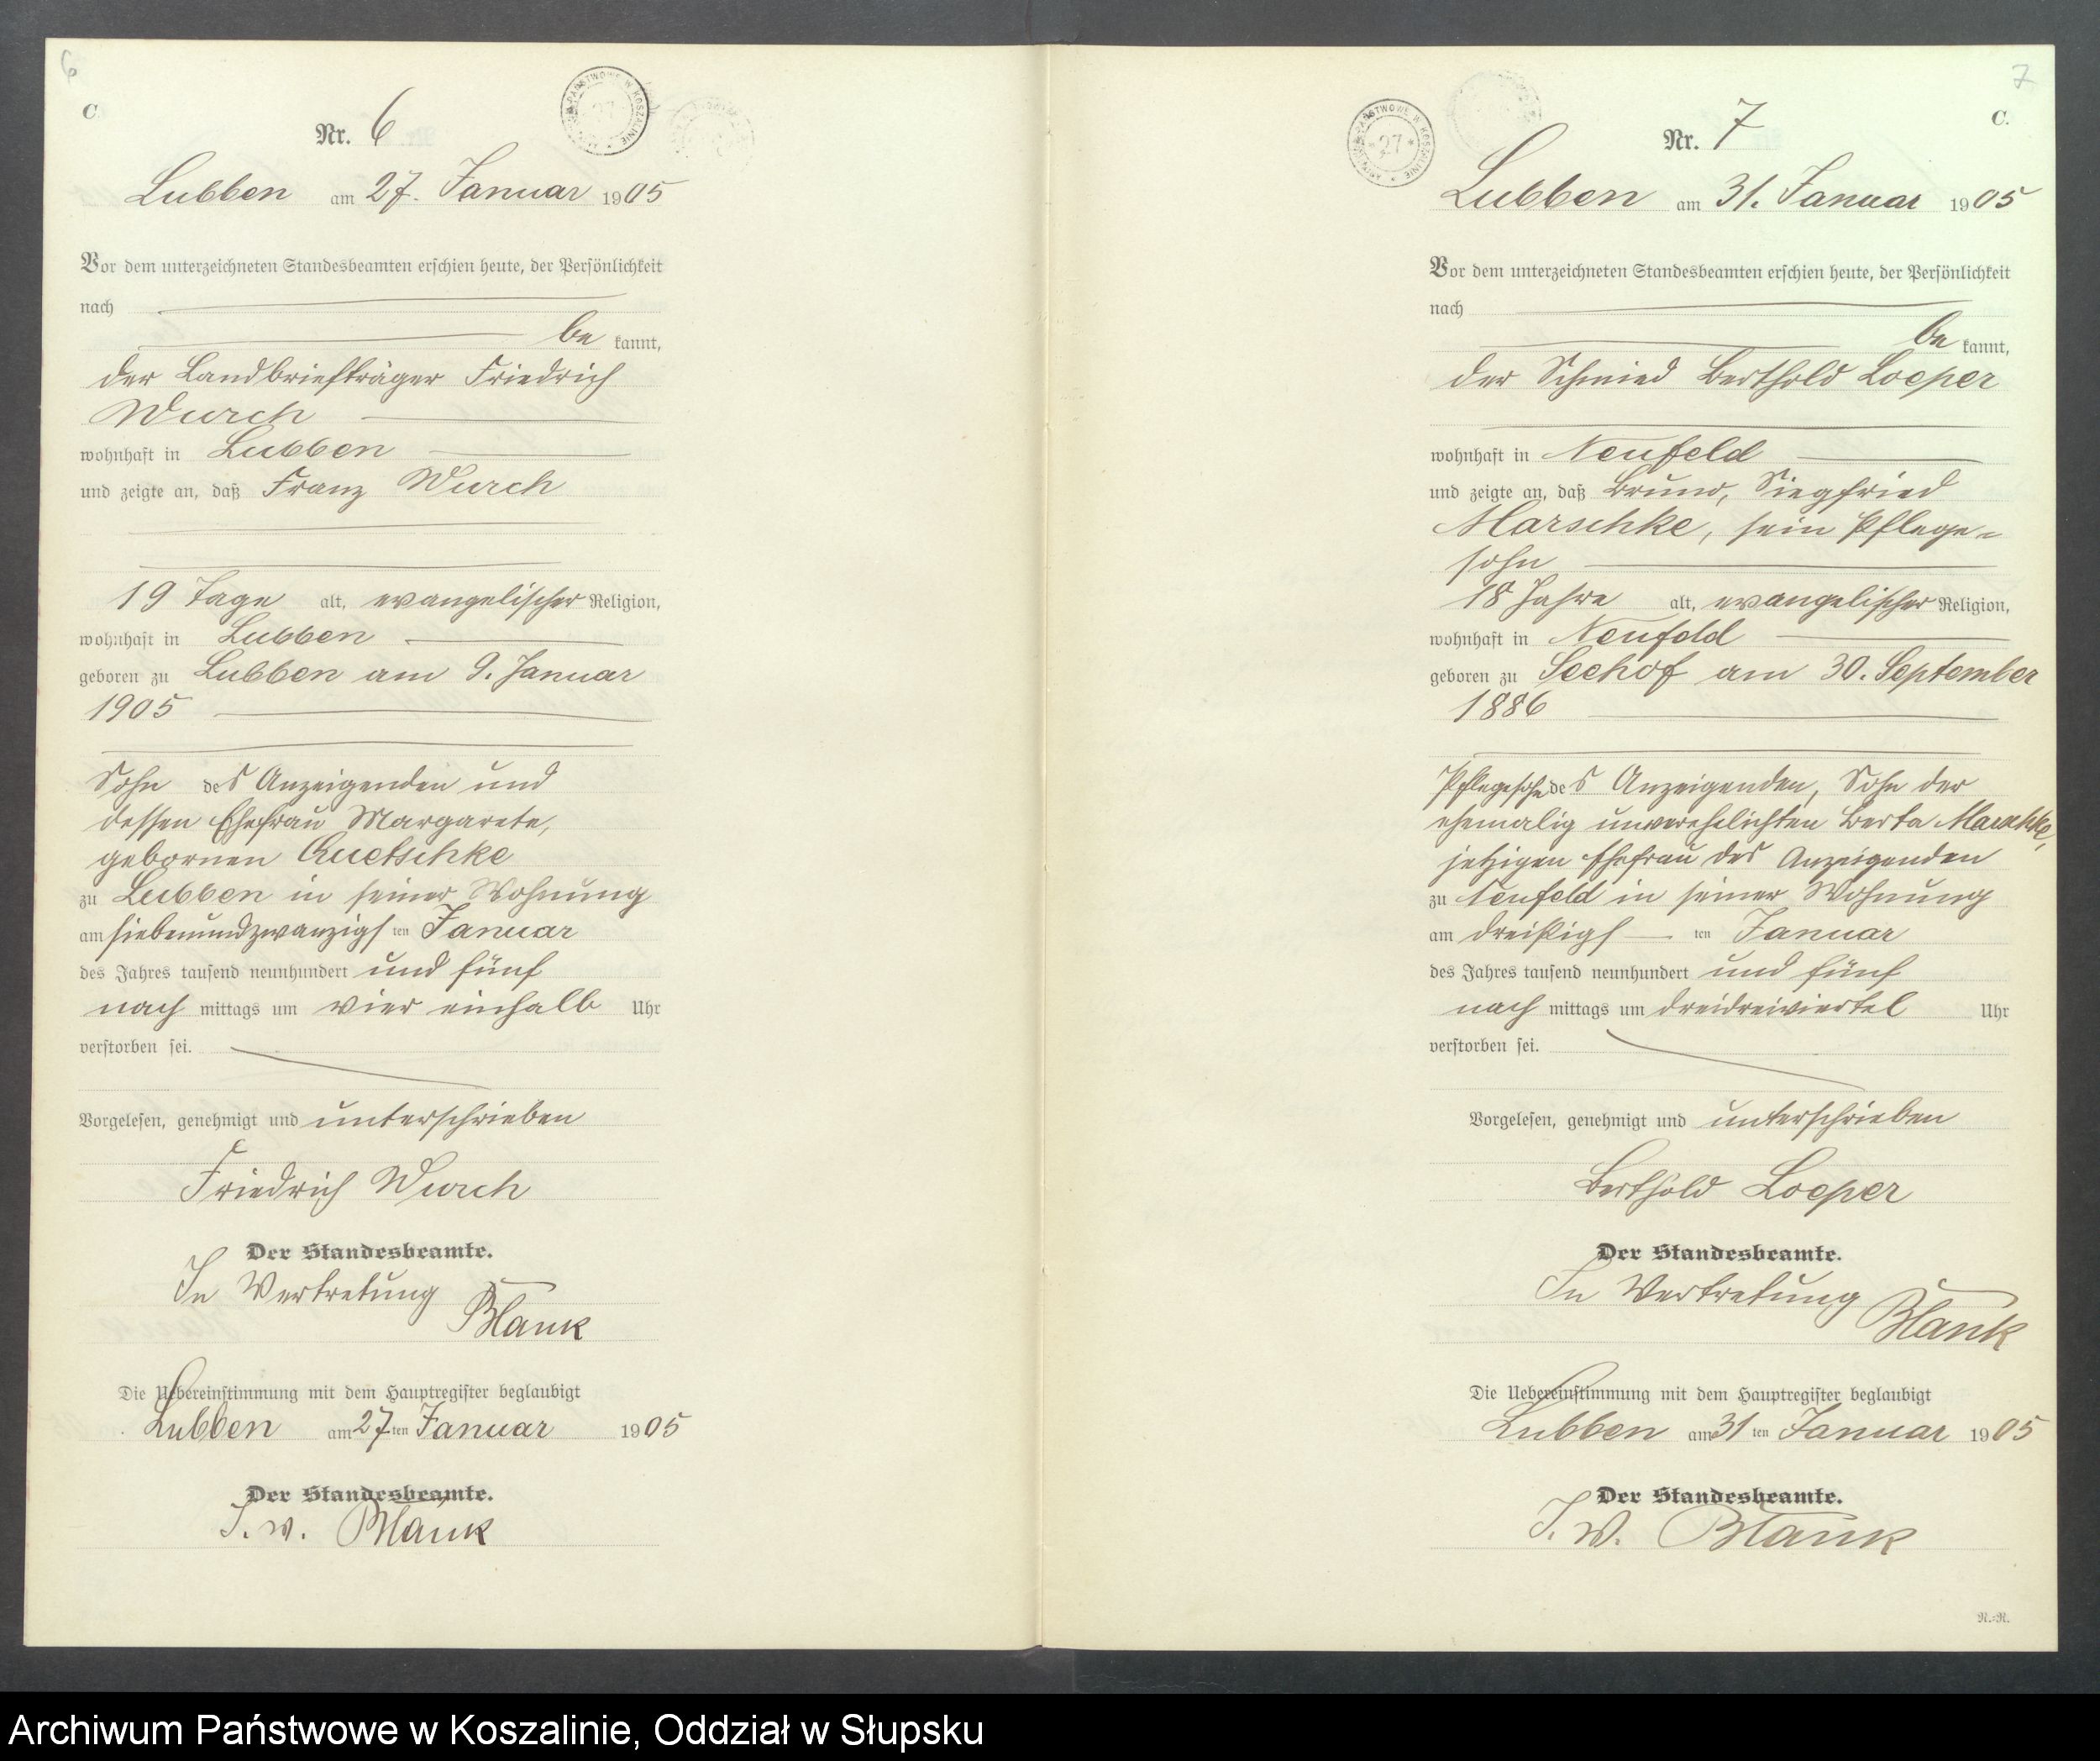 6
C
Nr. 6
Lubben am 27. Januar 1905
Vor dem unterzeichneten Standesbeamten erschien heute, der Persönlichkeit
nach
be kannt,
der Landbriefträger Friedrich
Wurch
wohnhaft in Lubben
und zeigte an, daß Franz Wurch
19 Tage alt, evangelischer Religion,
wohnhaft in Lubben
geboren zu Lubben am 9. Januar
1905
Sohn des Anzeigenden und
dessen Ehefrau Margarete,
gebornen Quetschke
zu Lubben in seiner Wohnung
am siebenundzwanzigsten Januar
des Jahres tausend neunhundert und fünf
nach mittags um vier einhalb Uhr
verstorben sei.
Vorgelesen, genehmigt und unterschrieben
Friedrich Wurch
Der Standesbeamte.
In Vertretung
Blank
Die Uebereinstimmung mit dem Hauptregister beglaubigt
Lubben am 27 ten Januar 1905
Der Standesbeamte.
I. V. Blank
7
C.
27
Nr. 7
Lubben am 31. Januar 1905
Vor dem unterzeichneten Standesbeamten erschien heute, der Persönlichkeit
nach
be kannt,
der Schmied Berthold Loeper
wohnhaft in Neufeld
und zeigte an, daß Bruno, Siegfried
Marschke, sein Pflege-
sohn
18 Jahre alt, evangelischer Religion,
wohnhaft in Neufeld
geboren zu Seehof am 30. September
1886
Pflegesohn des Anzeigenden, Sohn der
ehemalig unverehelichten Berta Marschke,
jetzigen Ehefrau des Anzeigenden
zu Neufeld in seiner Wohnung
am dreißigsten Januar
des Jahres tausend neunhundert und fünf
nach mittags um dreidreiviertel Uhr
verstorben sei.
Vorgelesen, genehmigt und unterschrieben
Berthold Loeper
Der Standesbeamte.
In Vertretung
Blank
Die Uebereinstimmung mit dem Hauptregister beglaubigt
Lubben am 31 ten Januar 1905
Der Standesbeamte.
I. V. Blank
R.-R.
Archiwum Państwowe w Koszalinie, Oddział w Słupsku